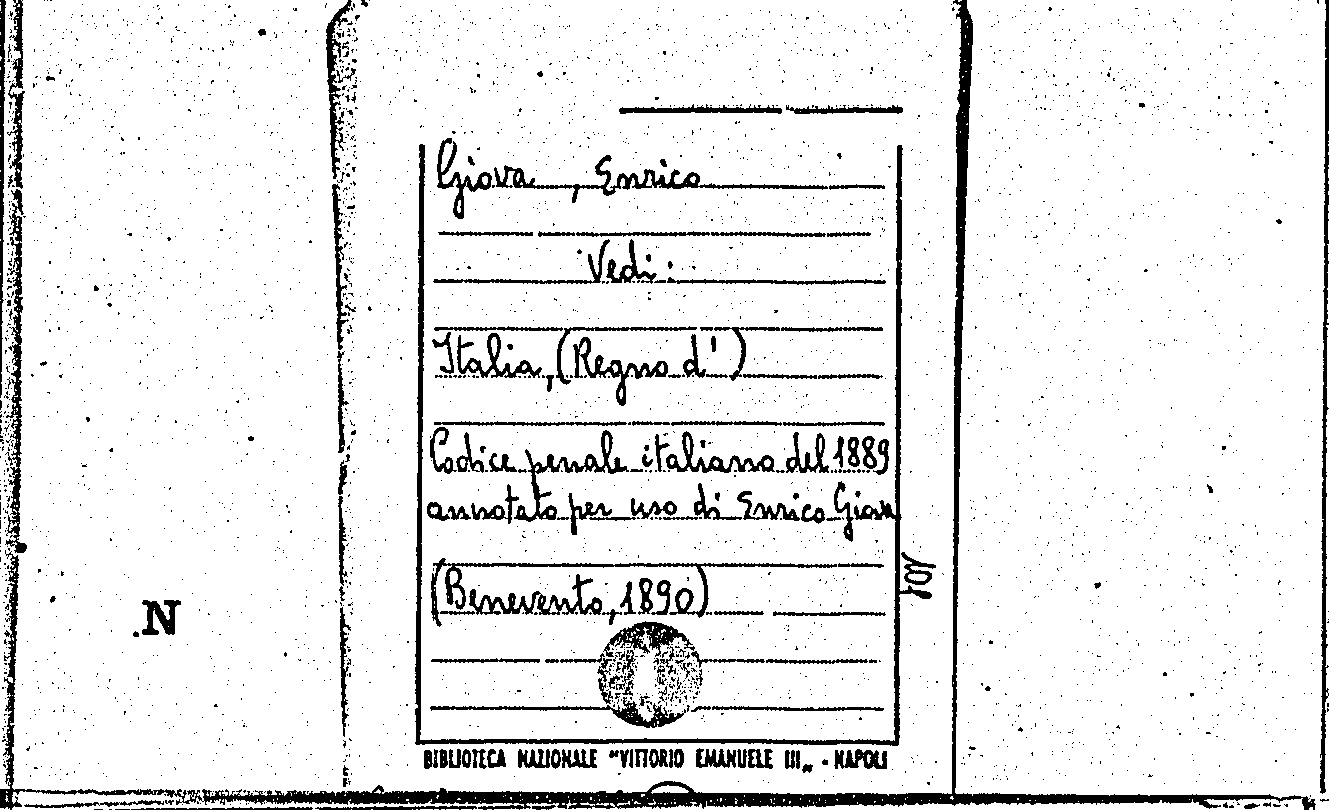 Giova, Enrico
Vedi:
Italia, (Regno d')
Codice penale italiano del 1889
annotato per uso di Enrico Giova
(Benevento, 1890)
.N
BIBLIOTECA NAZIONALE "VITTORIO EMANUELE III„ - NAPOLI